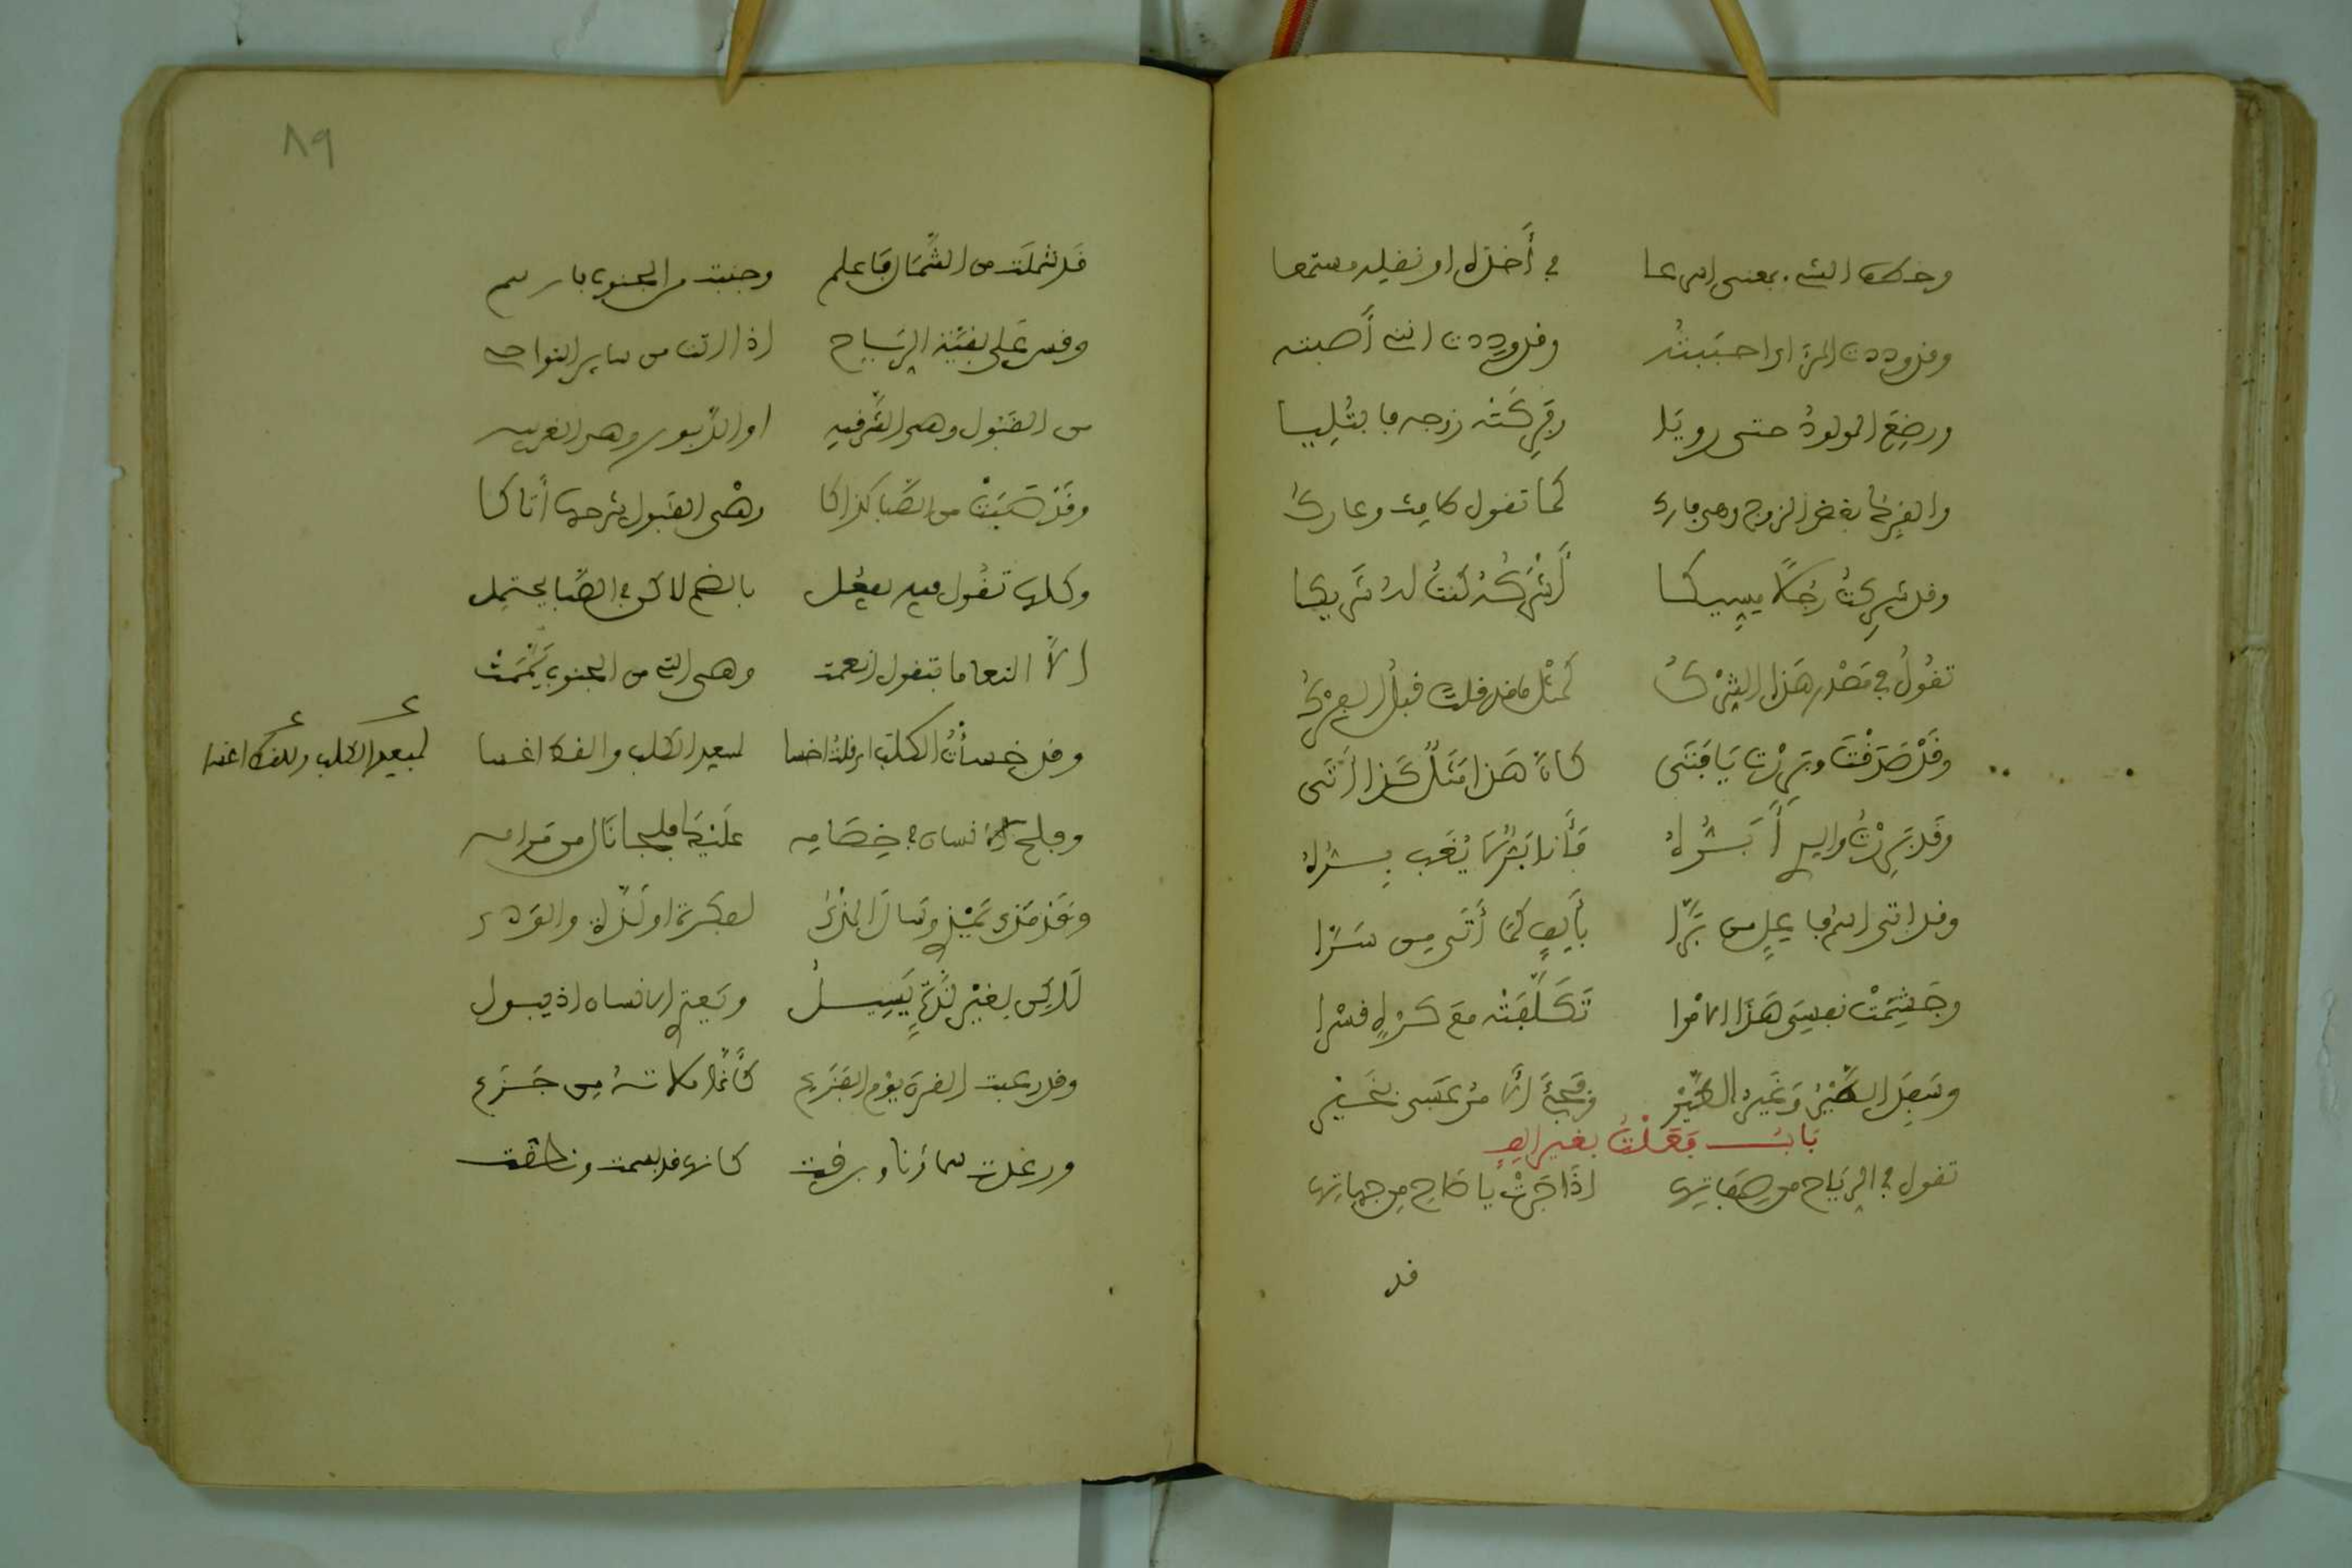 وخطف الشيء بمعنى اسرعا في أخذه او نفله مستمعا
وقد وددت المرء اي احببته وقد وددت انني أصبته
ورضع المولود حتى رويا وفركته زوجه فابتليا
والفرك بغض الزوج وهي فارك كما تقول طامث وعارك
وقد شركت رجلا مسيكا أشركه كنت له شريكا
تقول في مصدر هذا الشرك كمثل ما قد قلت قبل الفرك
وقد صدقت وبررت يا فتى كان هذا مثل كذا أتى
وقد بررت والدي أبره فأنا بر لم يغب بره
وقد اتى اسم فاعل من برا بألف كما أتى من سرا
وجشمت نفسي هذا الامرا تكلفته مع كره قسرا
وسفد الطير وغير الطير
باب فعلت بغير الف
تقول في الرياح من صفاتها اذا جرت يا صاح من جهاتها
قد
٨٩
قد شملت من الشمال فاعلم وجنبت من الجنوب يا
وقس على بقية الرياح اذا اتت من ساير النواحي
من القبول وهي الشرقيه او الدبور وهي الغربيه
وقد صبت من الصبا كذاكا وهي القبول شرحها أتاكا
وكلها تقول فيه يفعل بالضم لاكن في الصبا يحتمل
الا النعاما فتقول انعمت وهي التي من الجنوب يممت
وقد خسأت الكلب اي قلت اخسا لبعد الكلب
لبعيد الكلب
وفلج الانسان في خصامه عليك فلجا نال من مرامه
وقد مذى يمذي وسال المذي لفكرة او لذة والودي
لاكن بغير لذة يسيل ويعتري الانسان اذ يبول
وقد رعبت القرن يوم الفزع كأنما ملاته من جزع
ورعدت سماؤنا وبرقت كانها قد بسمت ونطقت